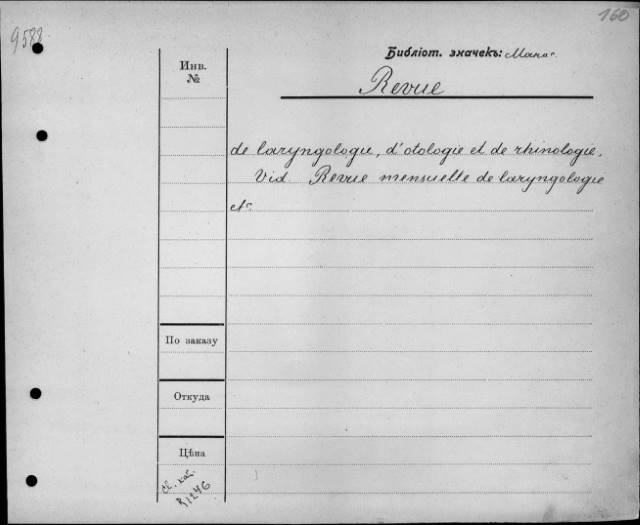 9588
160
Библіот. значекъ:
Инв.
№
Revue
de laryngologie, d'otologie et de rhinologie.
Vid. Revue mensuelle de laryngologie
etc.
По заказу
Откуда
Цѣна
R1246